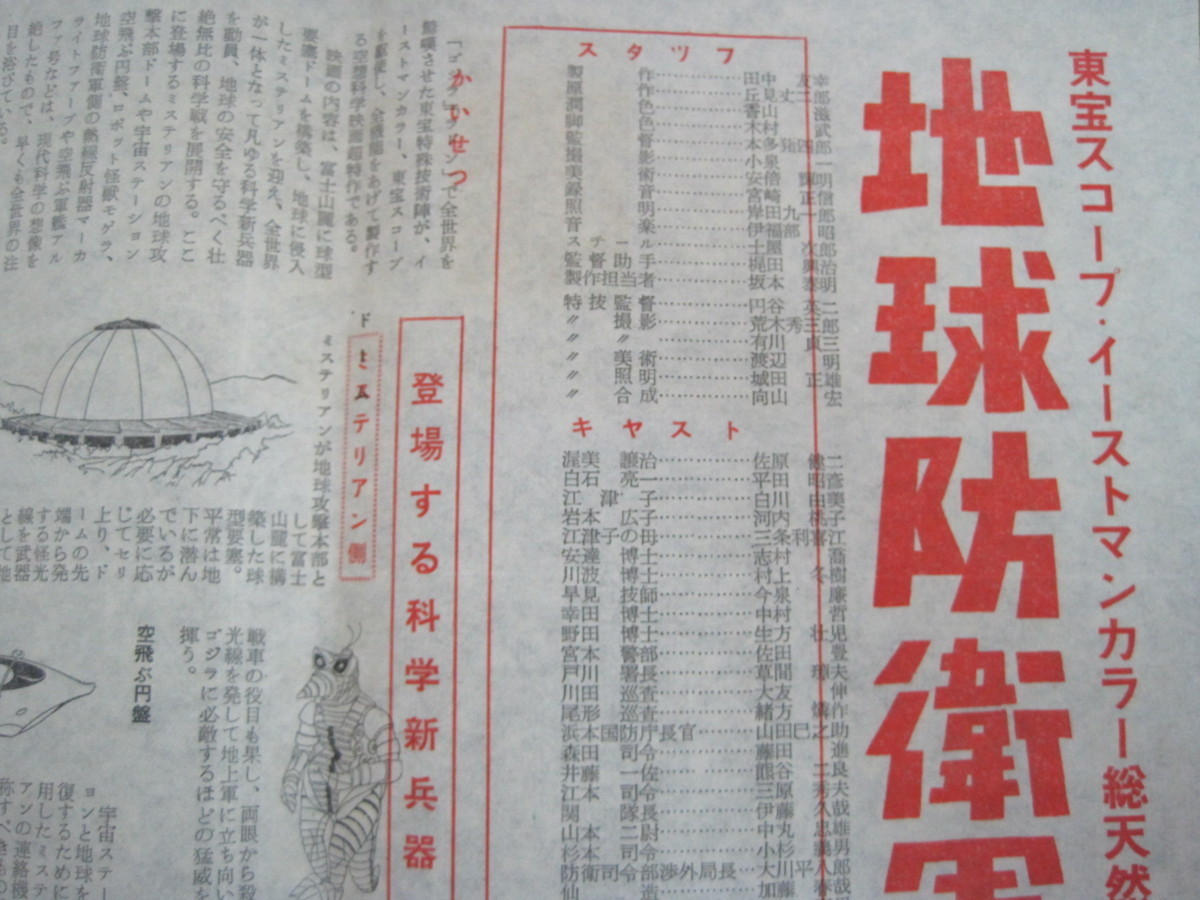 東宝スコープ・イーストマンカラー総天然
地球防衛軍
スタッフ
製作……田中友幸
原作……丘見丈二郎
潤色……香山滋
脚色……木村武
監督……本多猪四郎
撮影……小泉一
美術……安倍輝明
録音……宮崎正信
照明……岸田九一郎
音楽……伊福部昭
スチール……土屋次郎
監督助手……梶田興治
製作担当者……坂本泰明
特技監督……円谷英二
〃撮影……荒木秀三郎
〃〃……有川貞三
〃美術……渡辺明
〃照明……城田正雄
〃合成……向山宏
キャスト
渥美譲治……佐原健二
白石亮一……平田昭彦
江津子……白川由美
岩本広子……河内桃子
江津子の田……三条利喜江
安達博士……志村喬
川波博士……村上冬樹
早見技師……今泉廉
幸田博士……中村哲
野田博士……生方壮児
宮本警部……佐田豊
戸川署長……草間璋夫
川田巡査……大友伸
尾形巡査……緒方燐作
浜本国防庁長官……山田巳之助
森田司令……藤田進
井藤一佐……熊谷二良
江本司令……三原秀夫
関隊長……伊藤久哉
山本二尉……中丸忠雄
杉本司令……小杉義男
防衛司令部渉外局長……大川平八郎
仙造……加藤春哉
かいせつ
「ゴジラ」「ラドン」で全世界を
驚嘆させた東宝特殊技術陣が、イ
ーストマンカラー、東宝スコープ
を駆使し、全機能をあげて製作す
る空想科学映画超特作である。
映画の内容は、富士山麓に球型
要塞ドームを構築し、地球に侵入
したミステリアンを迎え、全世界
が一体となって凡ゆる科学新兵器
を動員、地球の安全を守るべく壮
絶無比の科学戦を展開する。ここ
に登場するミステリアンの地球攻
撃本部ドームや宇宙ステーション
空飛ぶ円盤、ロボット怪獣モゲラ、
地球防衛軍側の熱線反射器マーカ
ライトファープや空飛ぶ軍艦アル
ファ号などは、現代科学の想像を
絶したもので、早くも全世界の注
目を浴びている。
登場する科学新兵器
ミステリアン側
ド
ミステリアンが地球攻撃本部と
して富士
山麓に構
築した球
型要塞。
平常は地
下に潜ん
でいるが
必要に応
じてせり
上り、ド
ームの先
端から発
する怪光
線を武器
として地
戦車の役目も果し、両眼から殺
光線を発して地上軍に立ち向い
ゴジラに必敵するほどの猛威を
揮う。
空飛ぶ円盤
宇宙ステー
ョンと地球を
復するために
用したミステ
アンの連絡機
称すべきもの